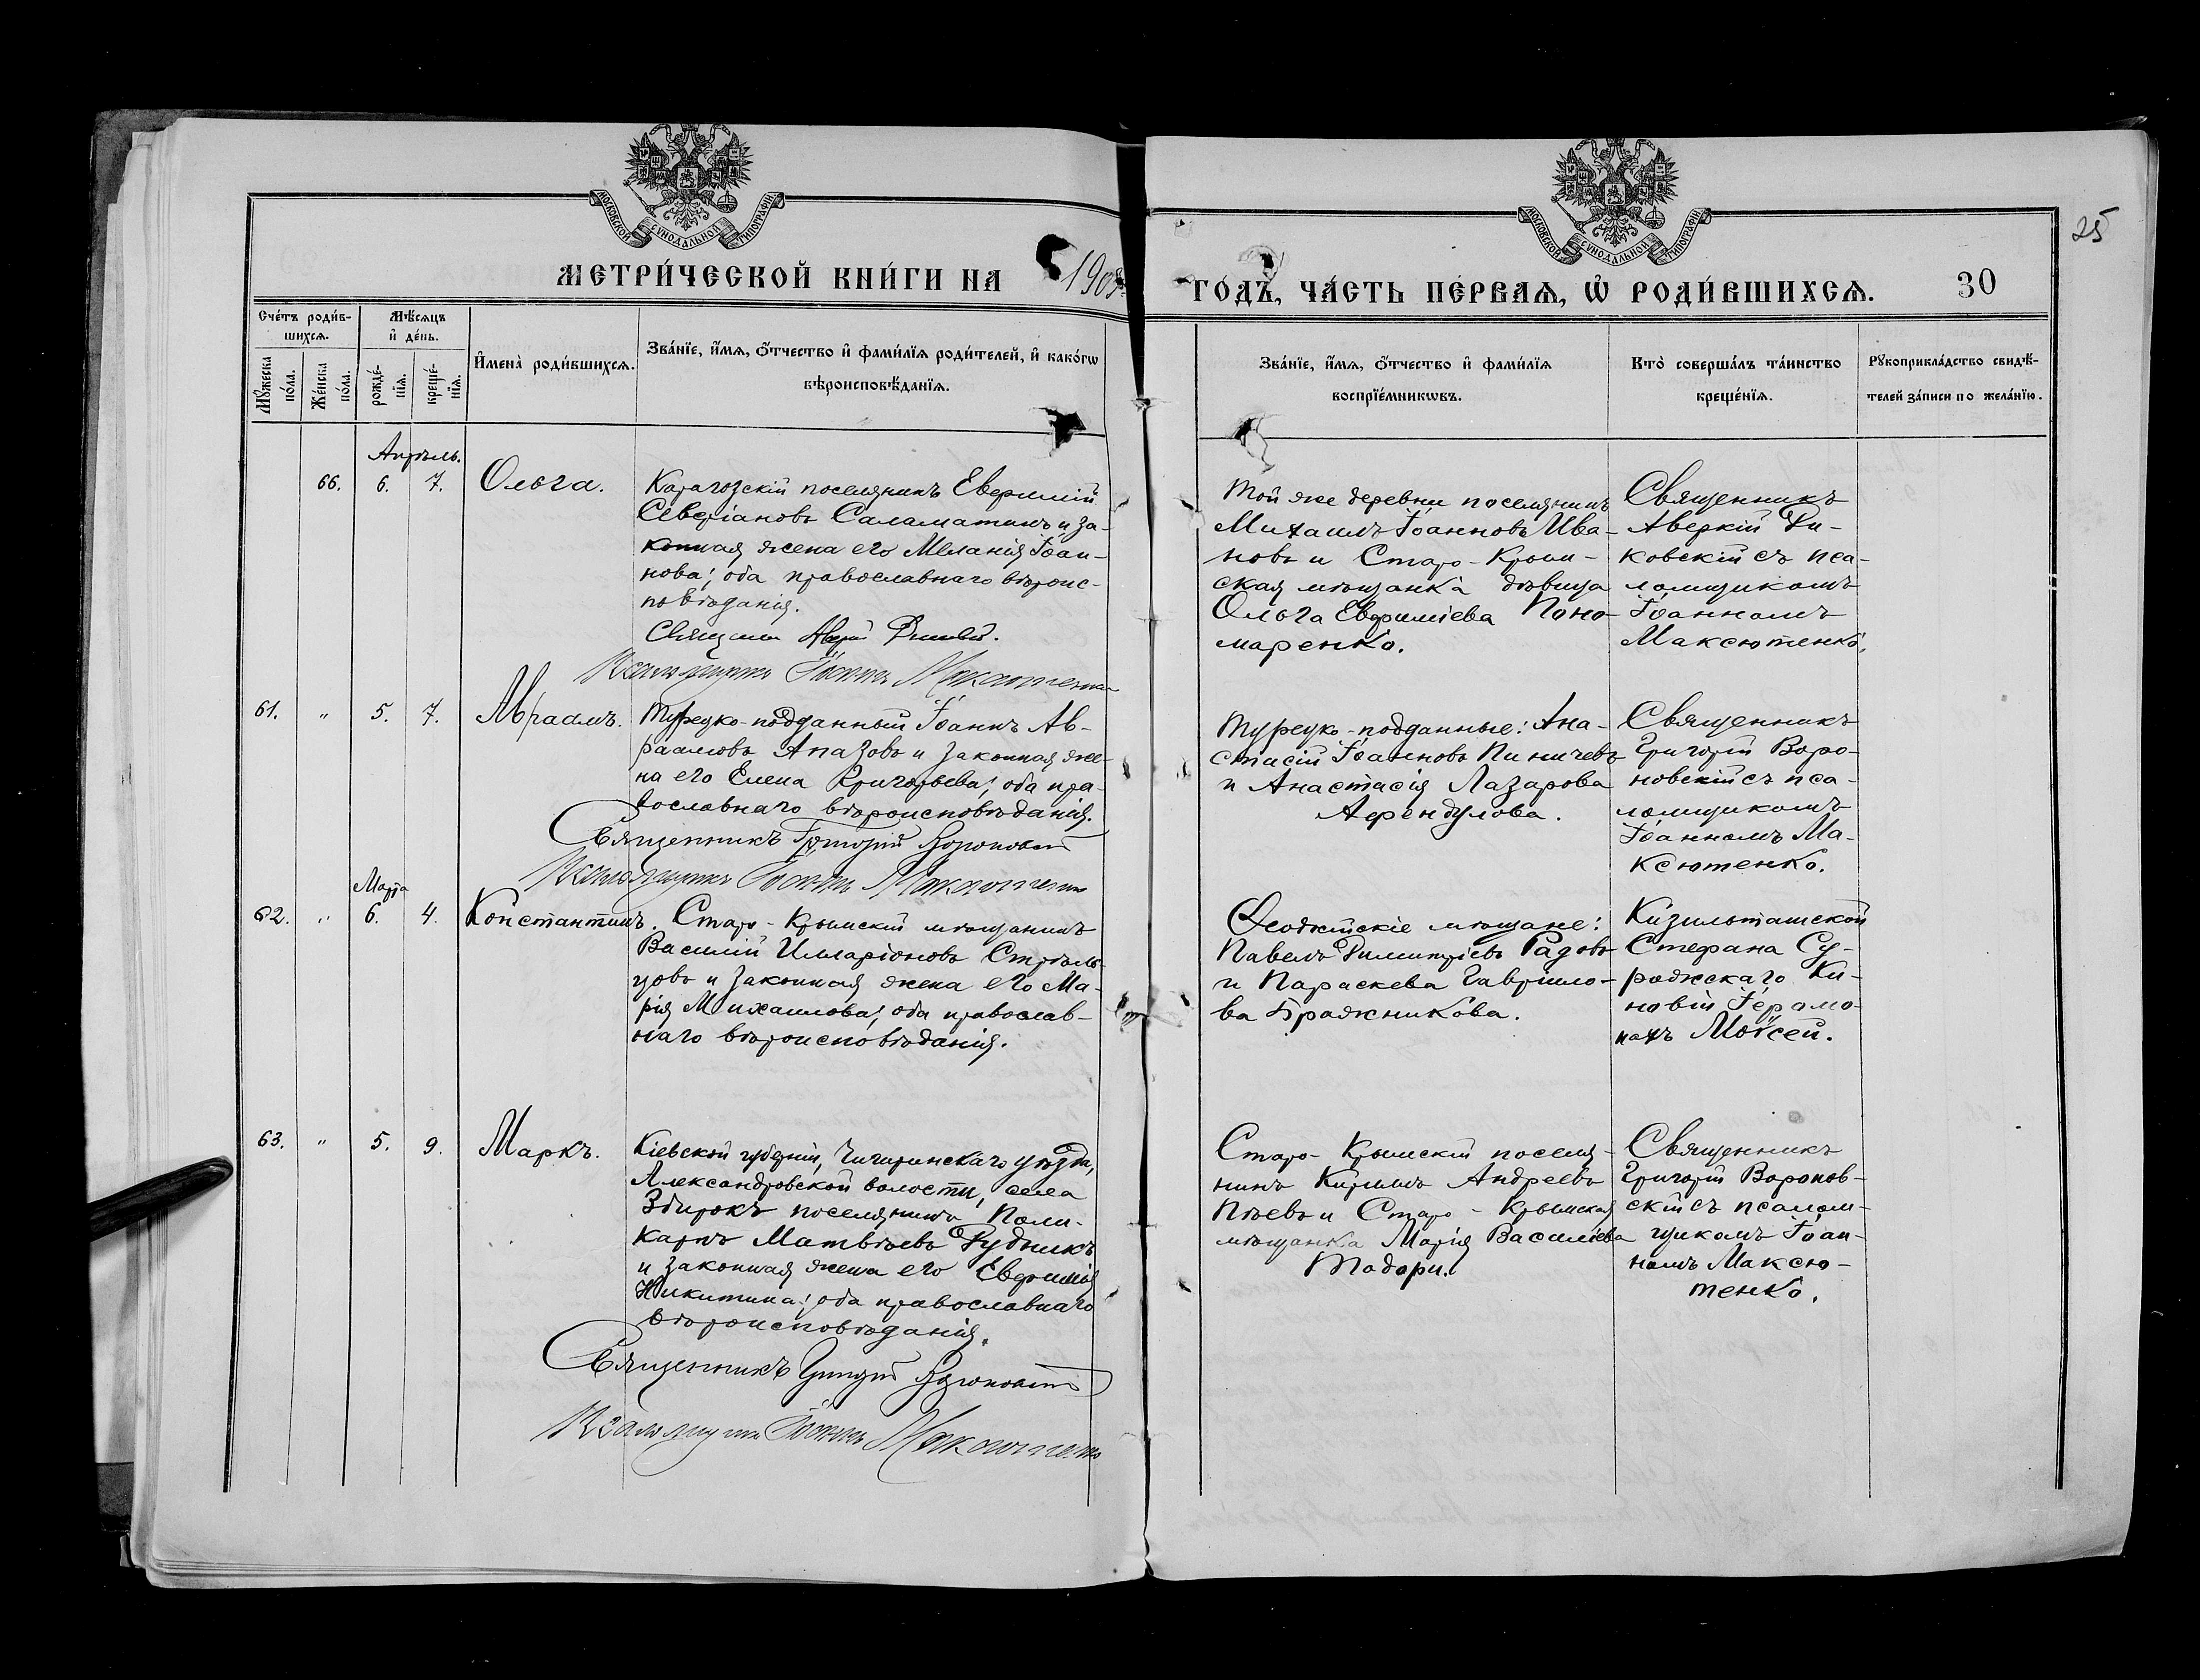 МОСКОВСКОЙ СѴНОДАЛЬНОЙ ТИПОГРАФІИ
МОСКОВСКОЙ СѴНОДАЛЬНОЙ ТИПОГРАФІИ
25
МЕТРИ́ЧЕСКОЙ КНИ́ГИ НА
ГО́ДЪ, ЧА́СТЬ ПЕ́РВАѦ, Ѡ҆ РОДИ́ВШИХСѦ.
30
Сче́тъ роди́в-
шихсѧ.
Мꙋ́жеска
по́ла.
Же́нска
по́ла.
Мѣ́сѧцъ
и҆ де́нь.
рожде́-
нїѧ.
креще́-
нїѧ.
И҆мена̀ роди́вшихсѧ.
Зва́нїе, и҆́мѧ, ѻ҆́тчество и҆ фами́лїѧ роди́телей, и҆ како́гѡ
вѣроисповѣ́данїѧ.
Зва́нїе, и҆́мѧ, ѻ҆́тчество и҆ фами́лїѧ
воспрїе́мникѡвъ.
Кто̀ соверша́лъ та́инство
креще́нїѧ.
Рꙋкоприкла́дство свидѣ́-
телей за́писи по жела́нїю.
Апрѣль.
66.
6.
7.
Ольга.
Карагозскій поселянинъ Евфимій
Севіріановъ Саламатинъ и за-
конная жена его Меланія Іоан-
нова; оба православнаго вѣроис-
повѣданія.
Той же деревни поселянинъ
Михаилъ Іоанновъ Ива-
новъ и Старо-Крым-
ская мѣщанка дѣвица
Ольга Евфиміева Поно-
маренко.
Священникъ
Аверкій
ковскій съ пса-
ломщикомъ
Іоанномъ
Максютенко.
Псаломщикъ Іоаннъ Максютенко
61.
"
5.
7.
Авраамъ.
Турецко-подданный Іоаннъ Ав-
раамовъ Апазовъ и законная же-
на его Елена Григорьева; оба пра-
вославнаго вѣроисповѣданія.
Священникъ Григорій Вороновскій
Псаломщикъ Іоаннъ Максютенко
Турецко-подданные: Ана-
стасій Іоанновъ Пиничевъ
и Анастасія Лазарова
Афендулова.
Священникъ
Григорій Воро-
новскій съ пса-
ломщикомъ
Іоанномъ Ма-
ксютенко.
Марта
62.
"
6.
4.
Константинъ.
Старо-Крымскій мѣщанинъ
Василій Илларіоновъ Стрѣль-
цовъ и законная жена его Ма-
рія Михаилова; оба православ-
наго вѣроисповѣданія.
Ѳеодосійскіе мѣщане:
Павелъ Димитріевъ Радовъ
и Параскева Гаврило-
ва Бражникова.
Кизильташской
Стефана Су-
рожскаго Ки-
новіи Іеромо-
нахъ Моѵсей.
63.
"
5.
9.
Маркъ.
Кіевской губерніи, Чигиринскаго уѣзда,
Александровской волости, села
поселянинъ Поли-
карпъ Матвѣевъ Рудникъ
и законная жена его Евфимія
Никитина; оба православнаго
вѣроисповѣданія.
Священникъ Григорій Вороновскій
Псаломщикъ Іоаннъ Максютенко
Старо-Крымскій поселя-
нинъ Кириллъ Андреевъ
и Старо-Крымская
мѣщанка Марія Василіева
Тодори.
Священникъ
Григорій Воронов-
скій съ псалом-
щикомъ Іоан-
номъ Максю-
тенко.